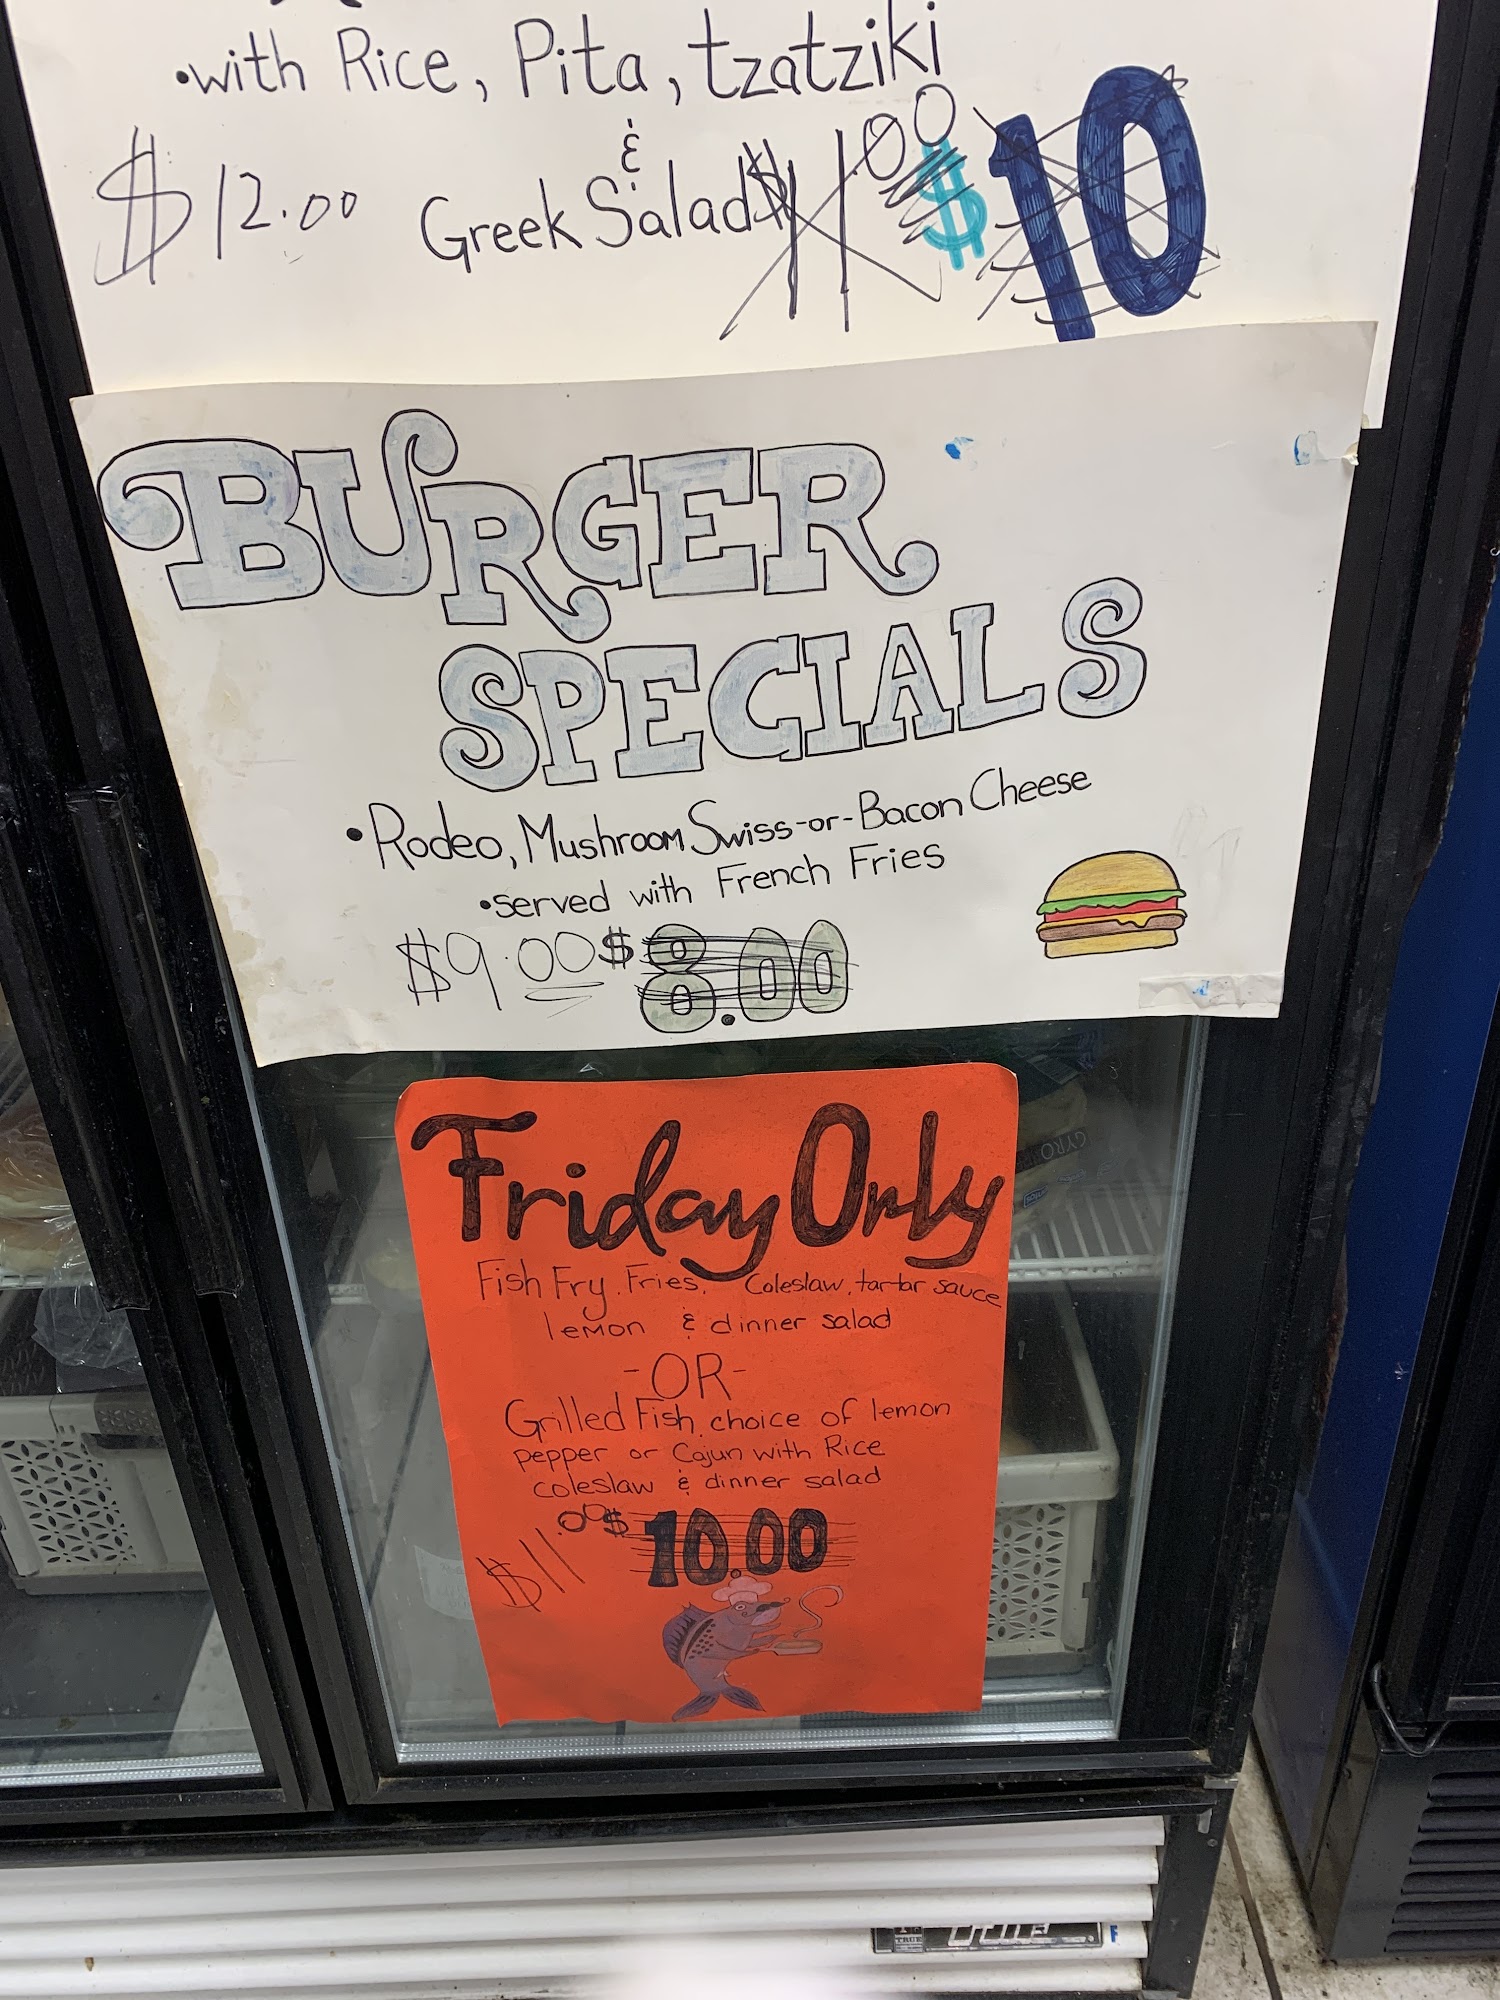 •with Rice, Pita, tzatziki
&
$12.00 Greek Salad $11.00 $10
BURGER
SPECIALS
•Rodeo, Mushroom Swiss-or-Bacon Cheese
•served with French Fries
$9.00 $8.00
Friday Only
Fish Fry, Fries, Coleslaw, tartar sauce
lemon & dinner salad
-OR-
Grilled Fish, choice of lemon
pepper or Cajun with Rice
coleslaw & dinner salad
$11.00 $10.00
GYRO
TRUE